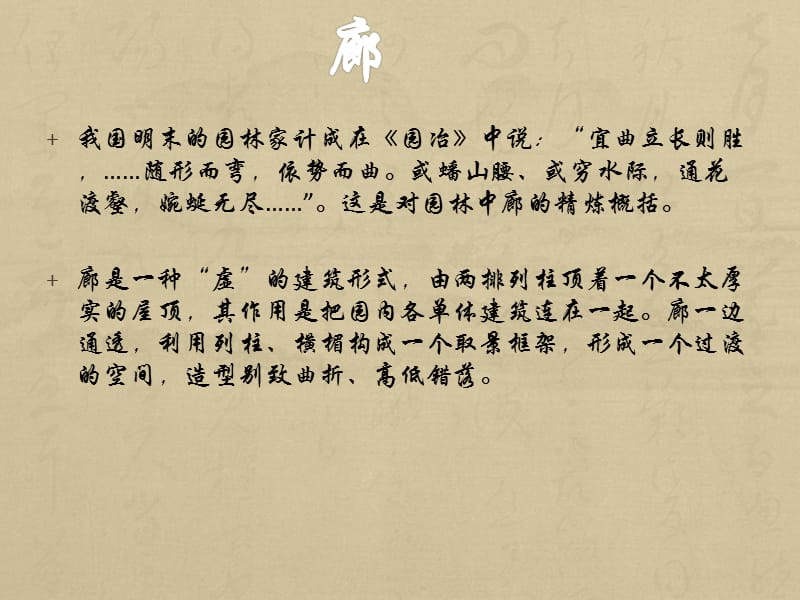 廊
+ 我国明末的园林家计成在《园冶》中说：“宜曲立长则胜
，……随形而弯，依势而曲。或蟠山腰、或穷水际，通花
渡壑，婉蜒无尽……”。这是对园林中廊的精炼概括。
+ 廊是一种“虚”的建筑形式，由两排列柱顶着一个不太厚
实的屋顶，其作用是把园内各单体建筑连在一起。廊一边
通透，利用列柱、横楣构成一个取景框架，形成一个过渡
的空间，造型别致曲折、高低错落。